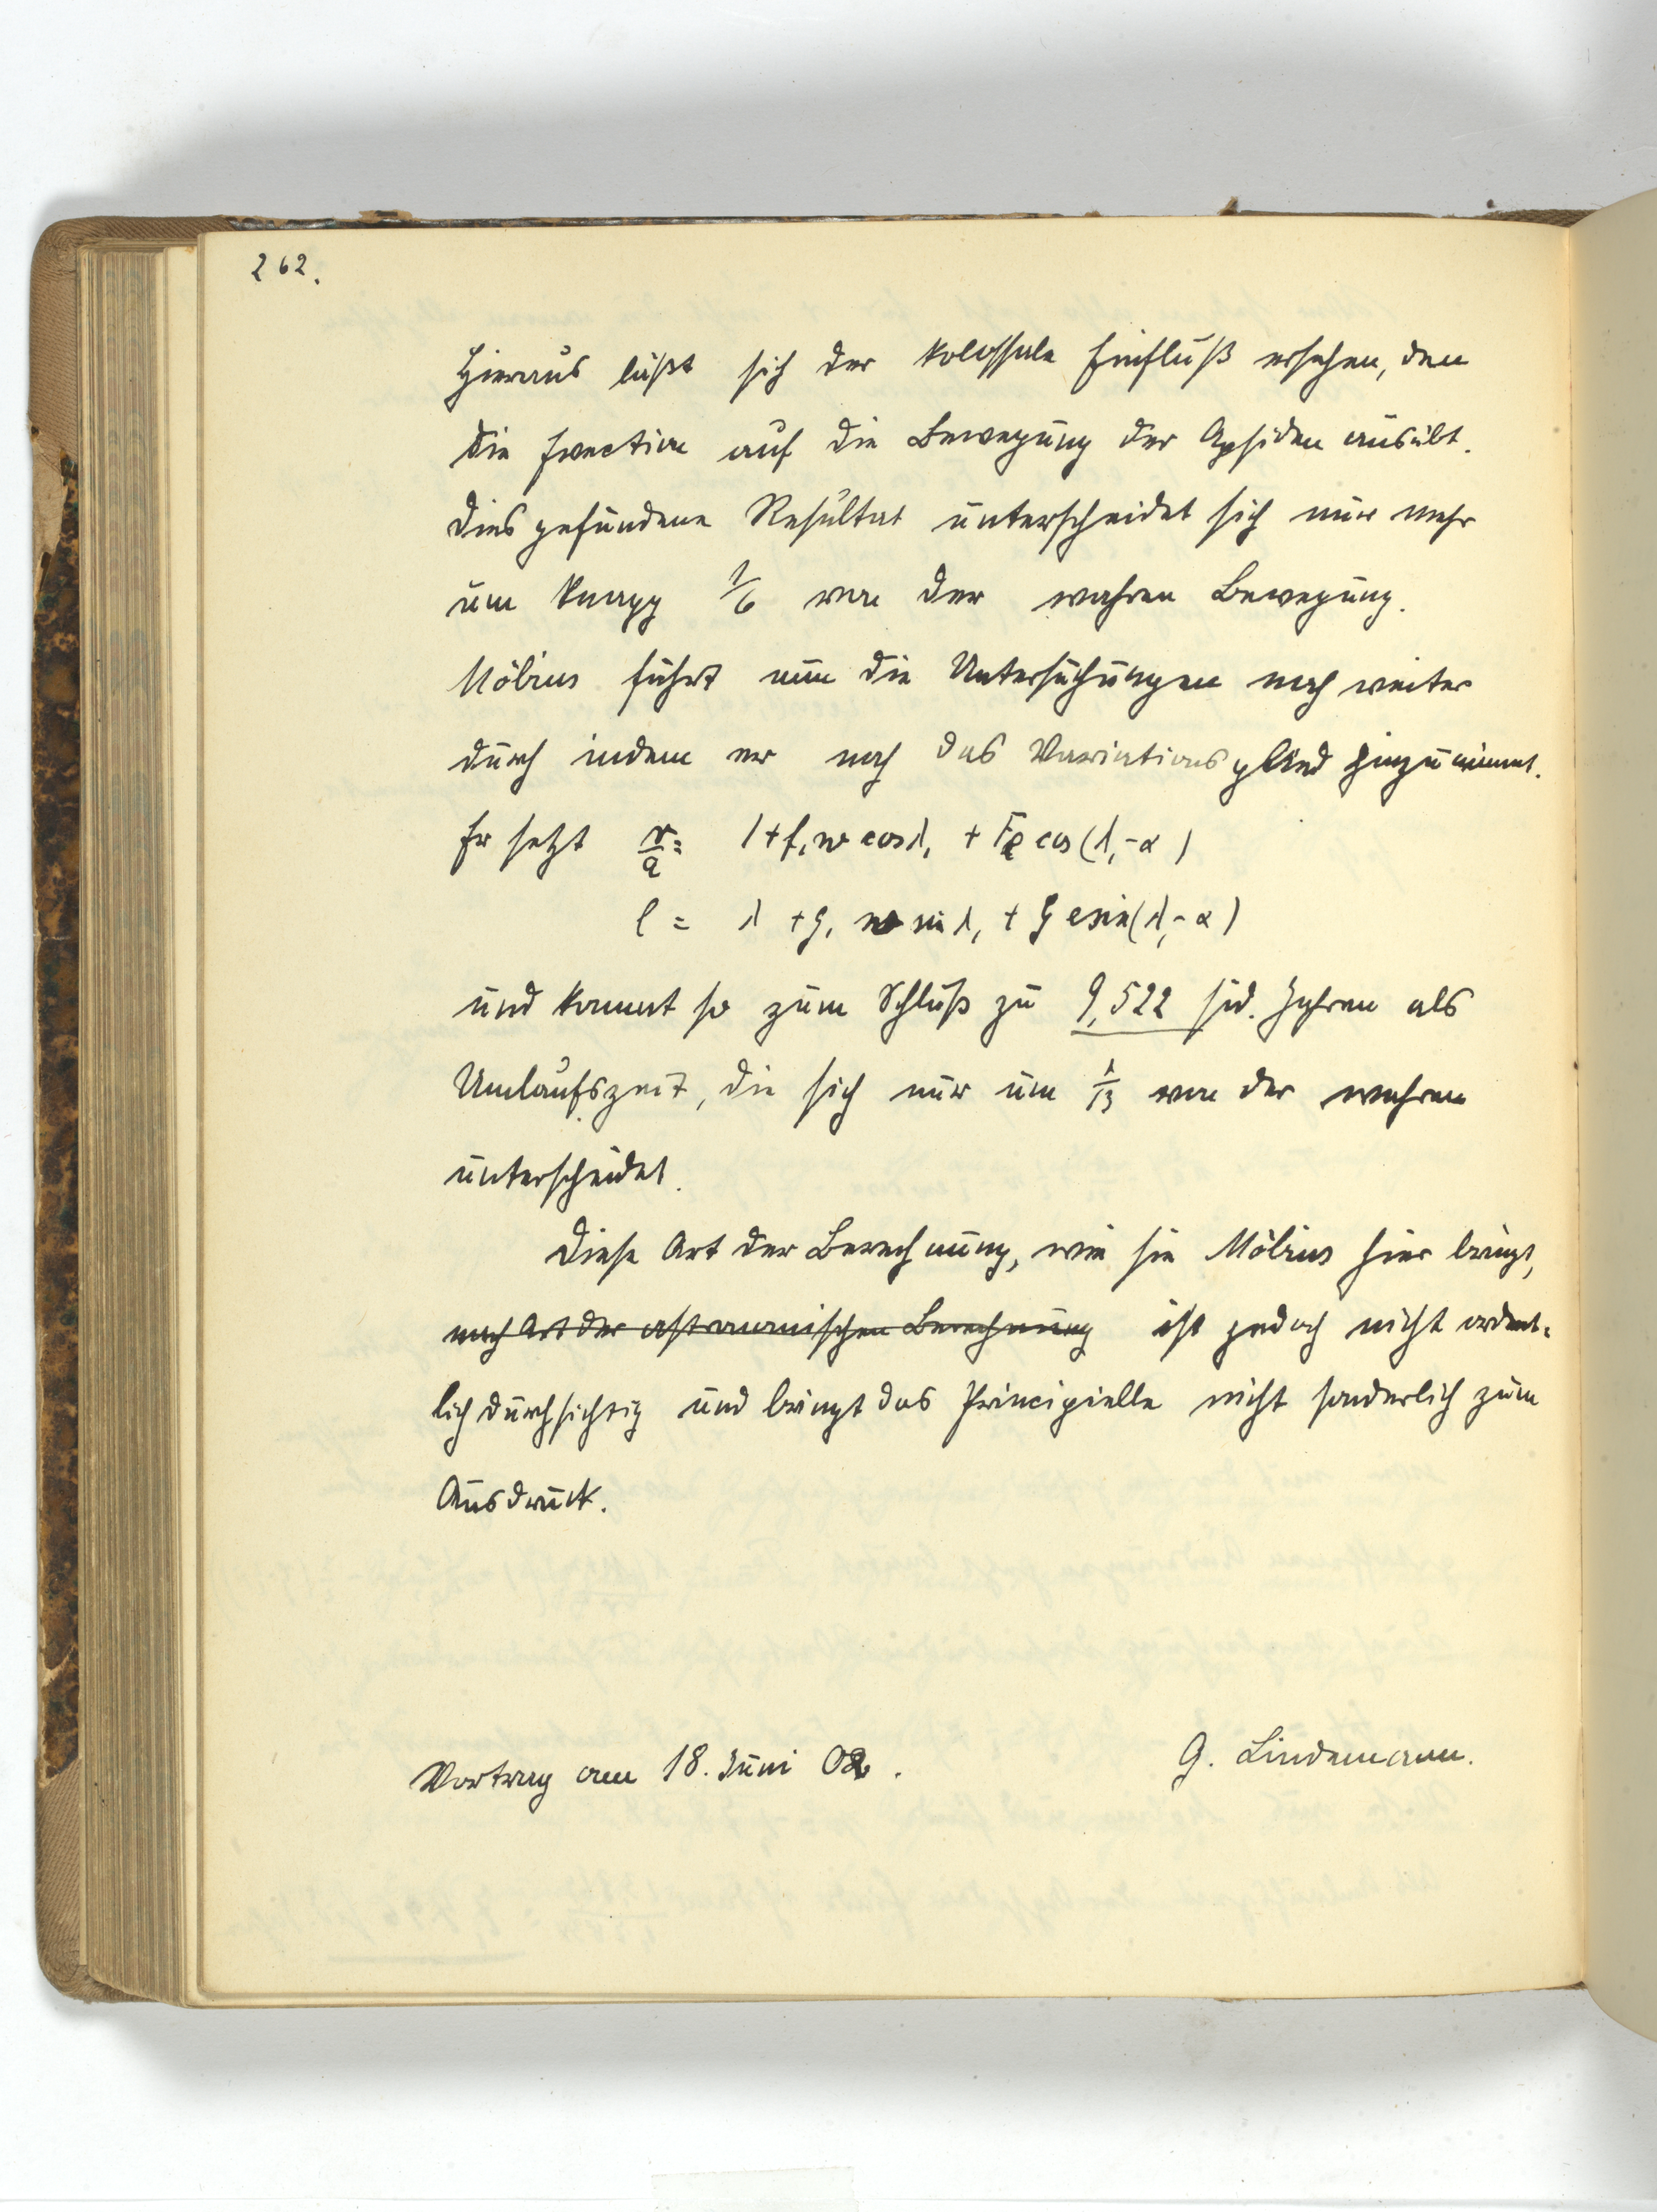 262.
Hieraus läßt sich der kolossale Einfluß ersehen, den
die Evection auf die Bewegung der Apsiden ausübt.
Dies gefundene Resultat unterscheidet sich nur mehr
um knapp 1/6 von der wahren Bewegung.
Möbius führt nun die Untersuchungen noch weiter
durch indem er noch das Variationsglied hinzunimmt.
Er setzt r/a = 1 + f₁ w cos λ₁ + F e cos (λ₁ - α)
l = λ + g₁ w sin λ₁ + G e sin (λ₁ - α)
und kommt so zum Schluß zu 9,522 sid. Jahren als
Umlaufszeit, die sich nur um 1/13 von der wahren
unterscheidet.
Diese Art der Berechnung, wie sie Möbius hier bringt,
nach Art der astronomischen Berechnung ist jedoch nicht ordent-
lich durchsichtig und bringt das Principielle nicht sonderlich zum
Ausdruck.
Vortrag am 18. Juni 02.
G. Lindemann.